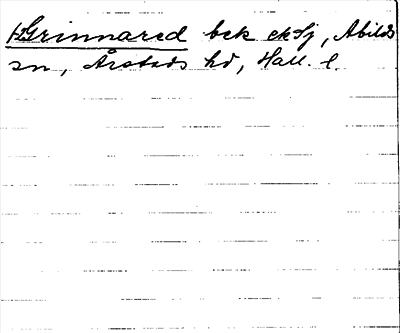 Grinnared bek ekSj, Abilds
sn, Årstads hd, Hall. l.